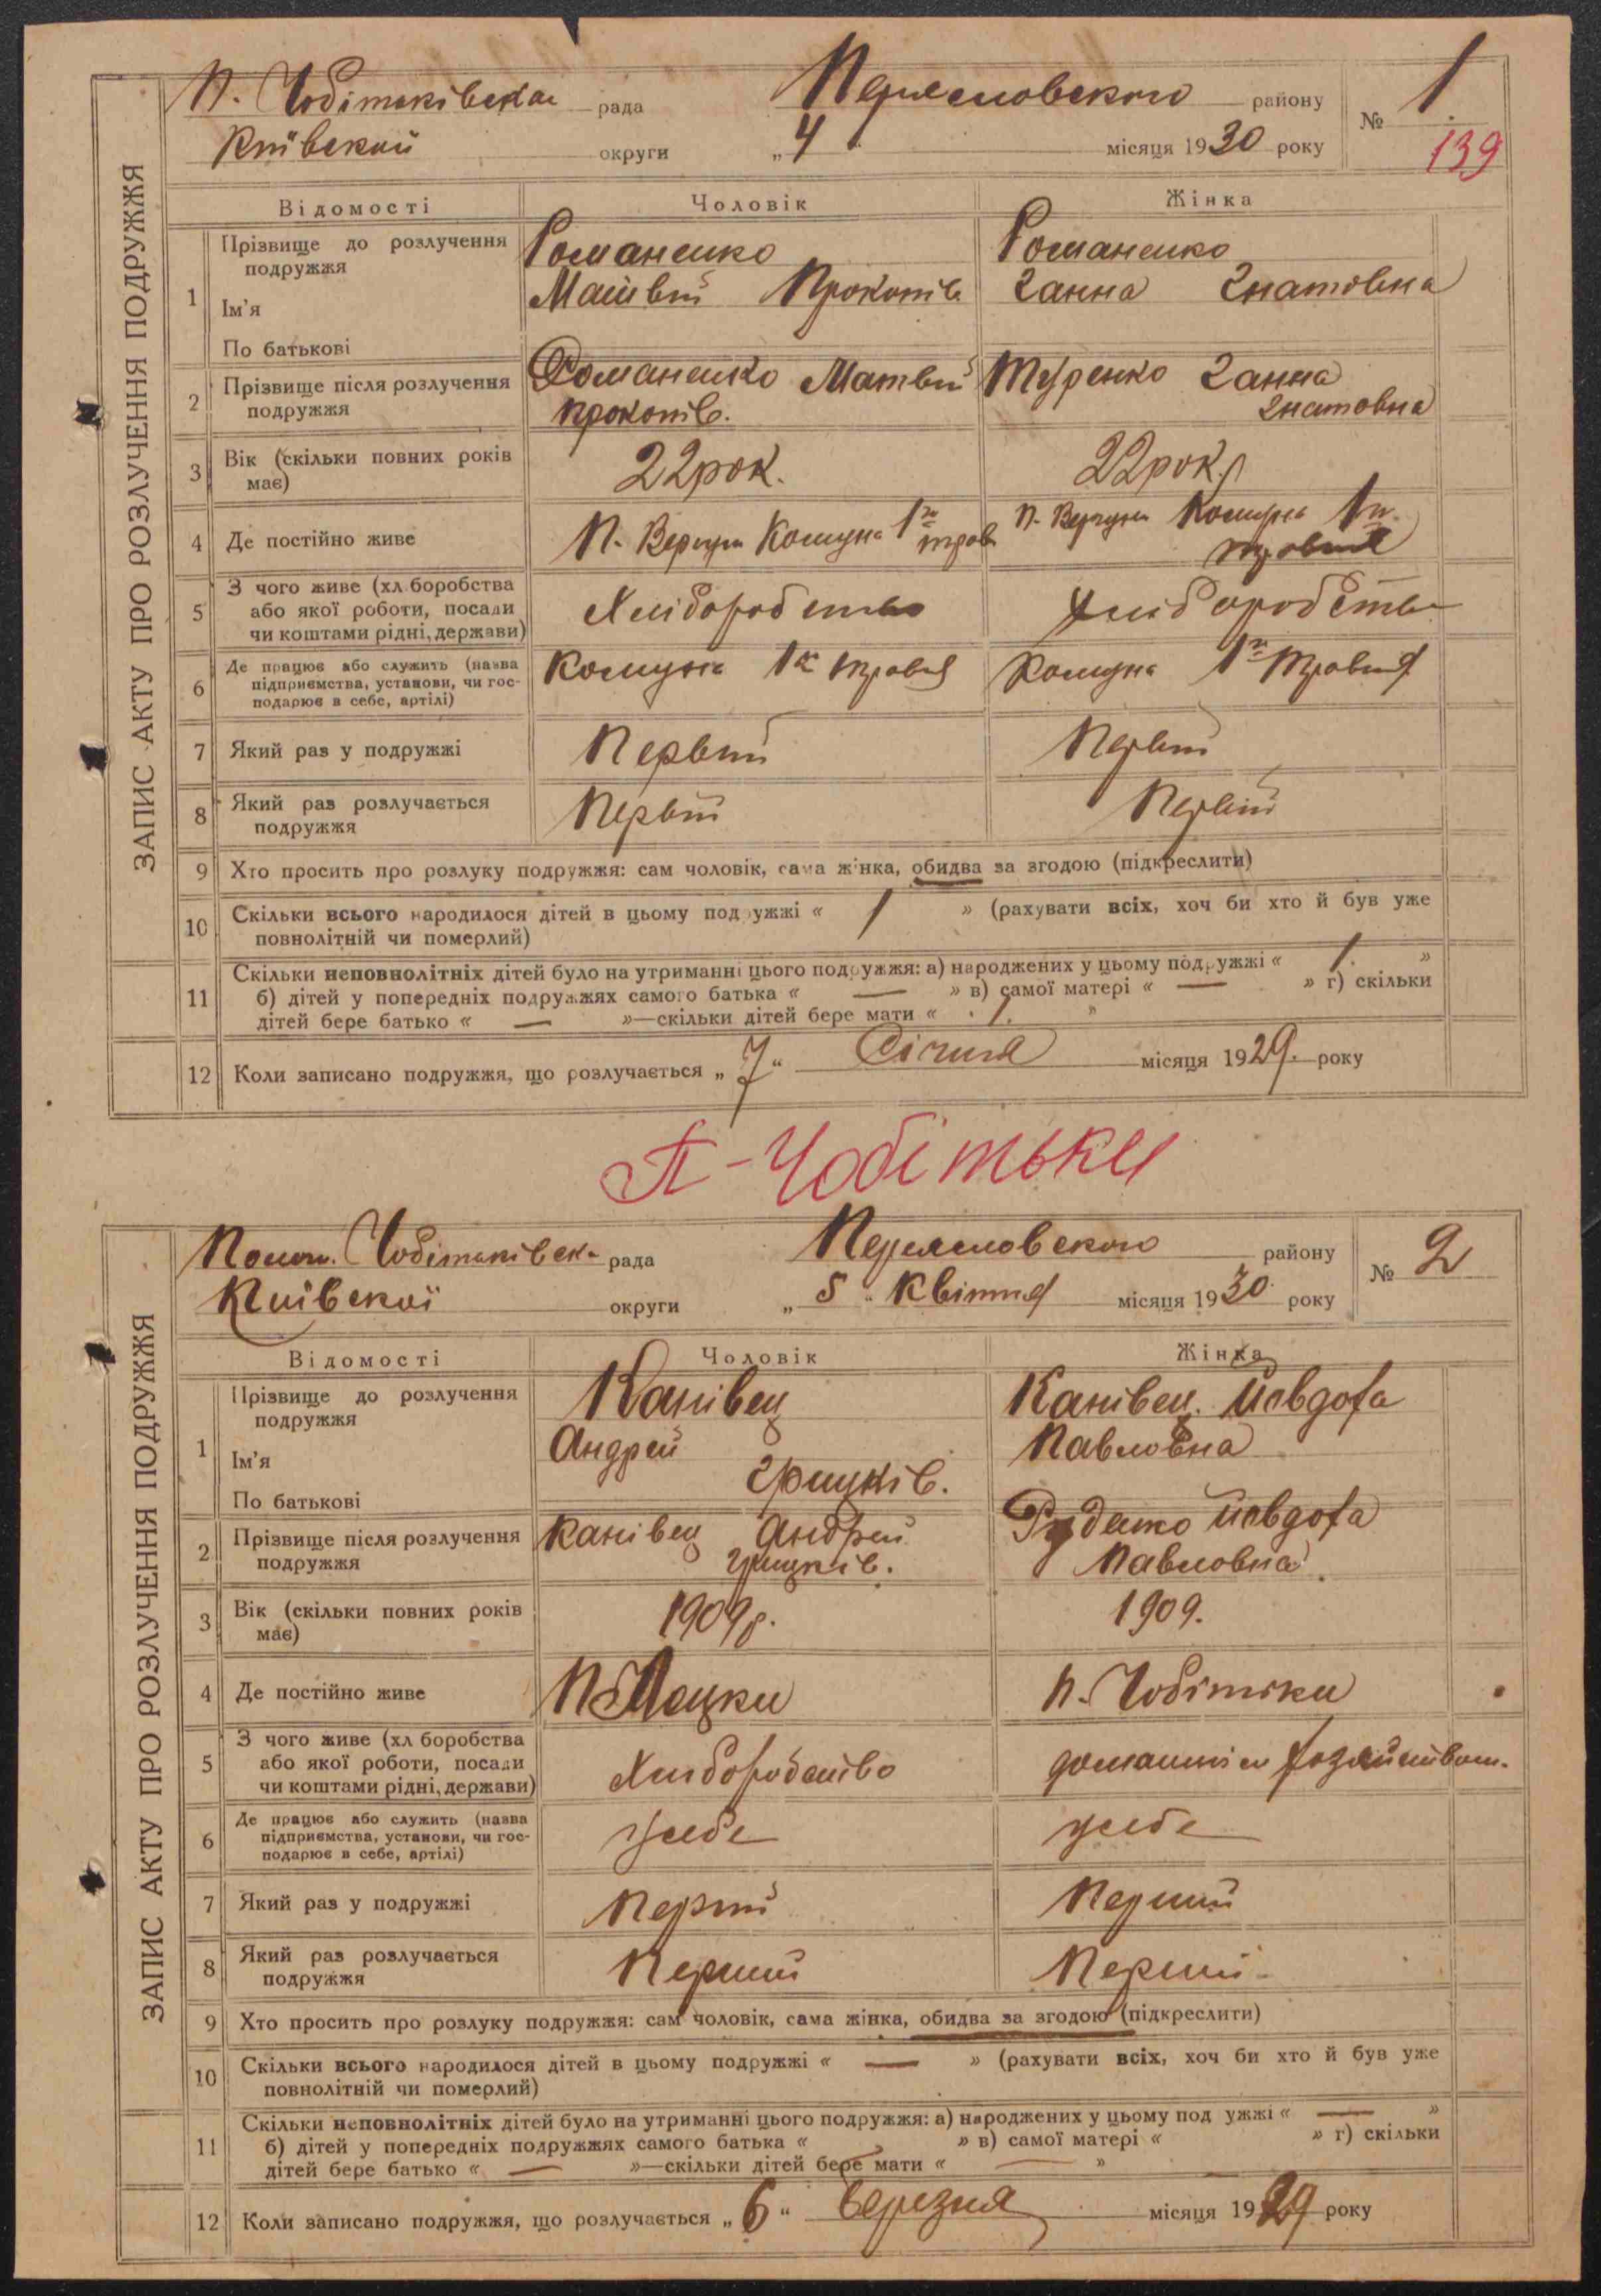 ЗАПИС АКТУ ПРО РОЗЛУЧЕННЯ ПОДРУЖЖЯ
П. Чобітьківская рада Переясловского району № 1
Київской округи „4 місяця 1930 року
139
Відомості Чоловік Жінка
1 Прізвище до розлучення подружжя Романенко Романенко
Ім'я Матвій Прокопів Ганна Гнатовна
По батькові
2 Прізвище після розлучення подружжя Романенко Матвій Прокопів. Туренко Ганна Гнатовна
3 Вік (скільки повних років має) 22 рок. 22 рок.
4 Де постійно живе П. Комуна 1го трав П. Комуна 1го травня
5 З чого живе (хл.боробства або якої роботи, посади чи коштами рідні, держави) Хліборобство Хліборобство
6 Де працює або служить (назва підприємства, установи, чи господарює в себе, артілі) Комуна 1го травня Комуна 1го травня
7 Який раз у подружжі Первий Первий
8 Який раз розлучається подружжя Первий Первий
9 Хто просить про розлуку подружжя: сам чоловік, сама жінка, обидва за згодою (підкреслити)
10 Скільки всього народилося дітей в цьому подружжі « 1 » (рахувати всіх, хоч би хто й був уже
повнолітній чи померлий)
11 Скільки неповнолітніх дітей було на утриманні цього подружжя: а) народжених у цьому подружжі « 1. »
б) дітей у попередніх подружжях самого батька « — » в) самої матері « — » г) скільки
дітей бере батько « — »—скільки дітей бере мати « 1. »
12 Коли записано подружжя, що розлучається „ 7 “ Січня місяця 1929. року
П-Чобітьки
ЗАПИС АКТУ ПРО РОЗЛУЧЕННЯ ПОДРУЖЖЯ
Чобітьківск рада Переясловского району № 2
Київскої округи „ 5 “ Квітня місяця 1930 року
Відомості Чоловік Жінка
1 Прізвище до розлучення подружжя Канівец Канівец Йовдоха
Ім'я Андрей Павловна
По батькові Грицьків.
2 Прізвище після розлучення подружжя Канівец Андрей Грицьків. Йовдоха Павловна
3 Вік (скільки повних років має) 1909 р. 1909.
4 Де постійно живе П. Чобітьки
5 З чого живе (хл боробства або якої роботи, посади чи коштами рідні, держави) Хліборобство домашнім хозяйством.
6 Де працює або служить (назва підприємства, установи, чи господарює в себе, артілі) усебе усебе
7 Який раз у подружжі Перший Перший
8 Який раз розлучається подружжя Перший Перший
9 Хто просить про розлуку подружжя: сам чоловік, сама жінка, обидва за згодою (підкреслити)
10 Скільки всього народилося дітей в цьому подружжі « — » (рахувати всіх, хоч би хто й був уже
повнолітній чи померлий)
11 Скільки неповнолітніх дітей було на утриманні цього подружжя: а) народжених у цьому под ужжі « — »
б) дітей у попередніх подружжях самого батька « » в) самої матері « » г) скільки
дітей бере батько « — »—скільки дітей бере мати « — »
12 Коли записано подружжя, що розлучається „ 6 “ березня місяця 1929 року